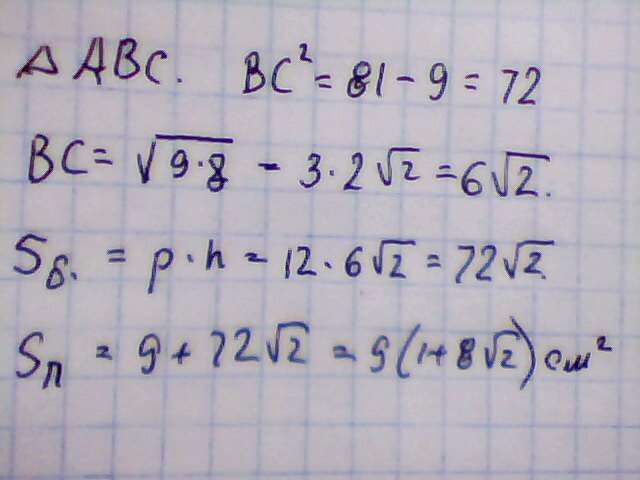 △ ABC. BC² = 81 - 9 = 72
BC = √(9·8) = 3·2√2 = 6√2.
Sб. = p·h = 12·6√2 = 72√2.
Sп = 9 + 72√2 = 9(1+8√2) см²